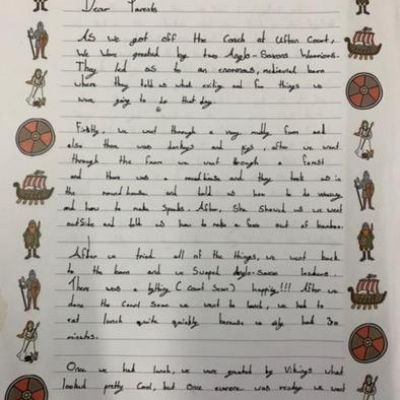 Dear Parents
As we got off the Coach at Ufton Court,
we were greeted by two Anglo-Saxons Warriors.
They led us to an enormous, medieval barn
where they told us what exiting and fun things we
were going to do that day.
Firstly, we went through a very muddy farm and
also there was donkeys and pigs, after we went
through the farm we went through a forest
and there was a roundhouse and they took us in
the roundhouse and told us how to do weaving
and how to make sparks. After, She showed us we went
outside and told us how to make a fence out of bamboo.
After we tried all of the things, we went back
to the barn and we swaped Anglo-Saxon leaders.
There was a (Court Scene) happing!!! After we
done the Court Scene we went to lunch, we had to
eat lunch quite quickly because we only had 30
minutes.
Once we had lunch, we were greeted by Vikings what
looked pretty cool, but once everyone was ready we went